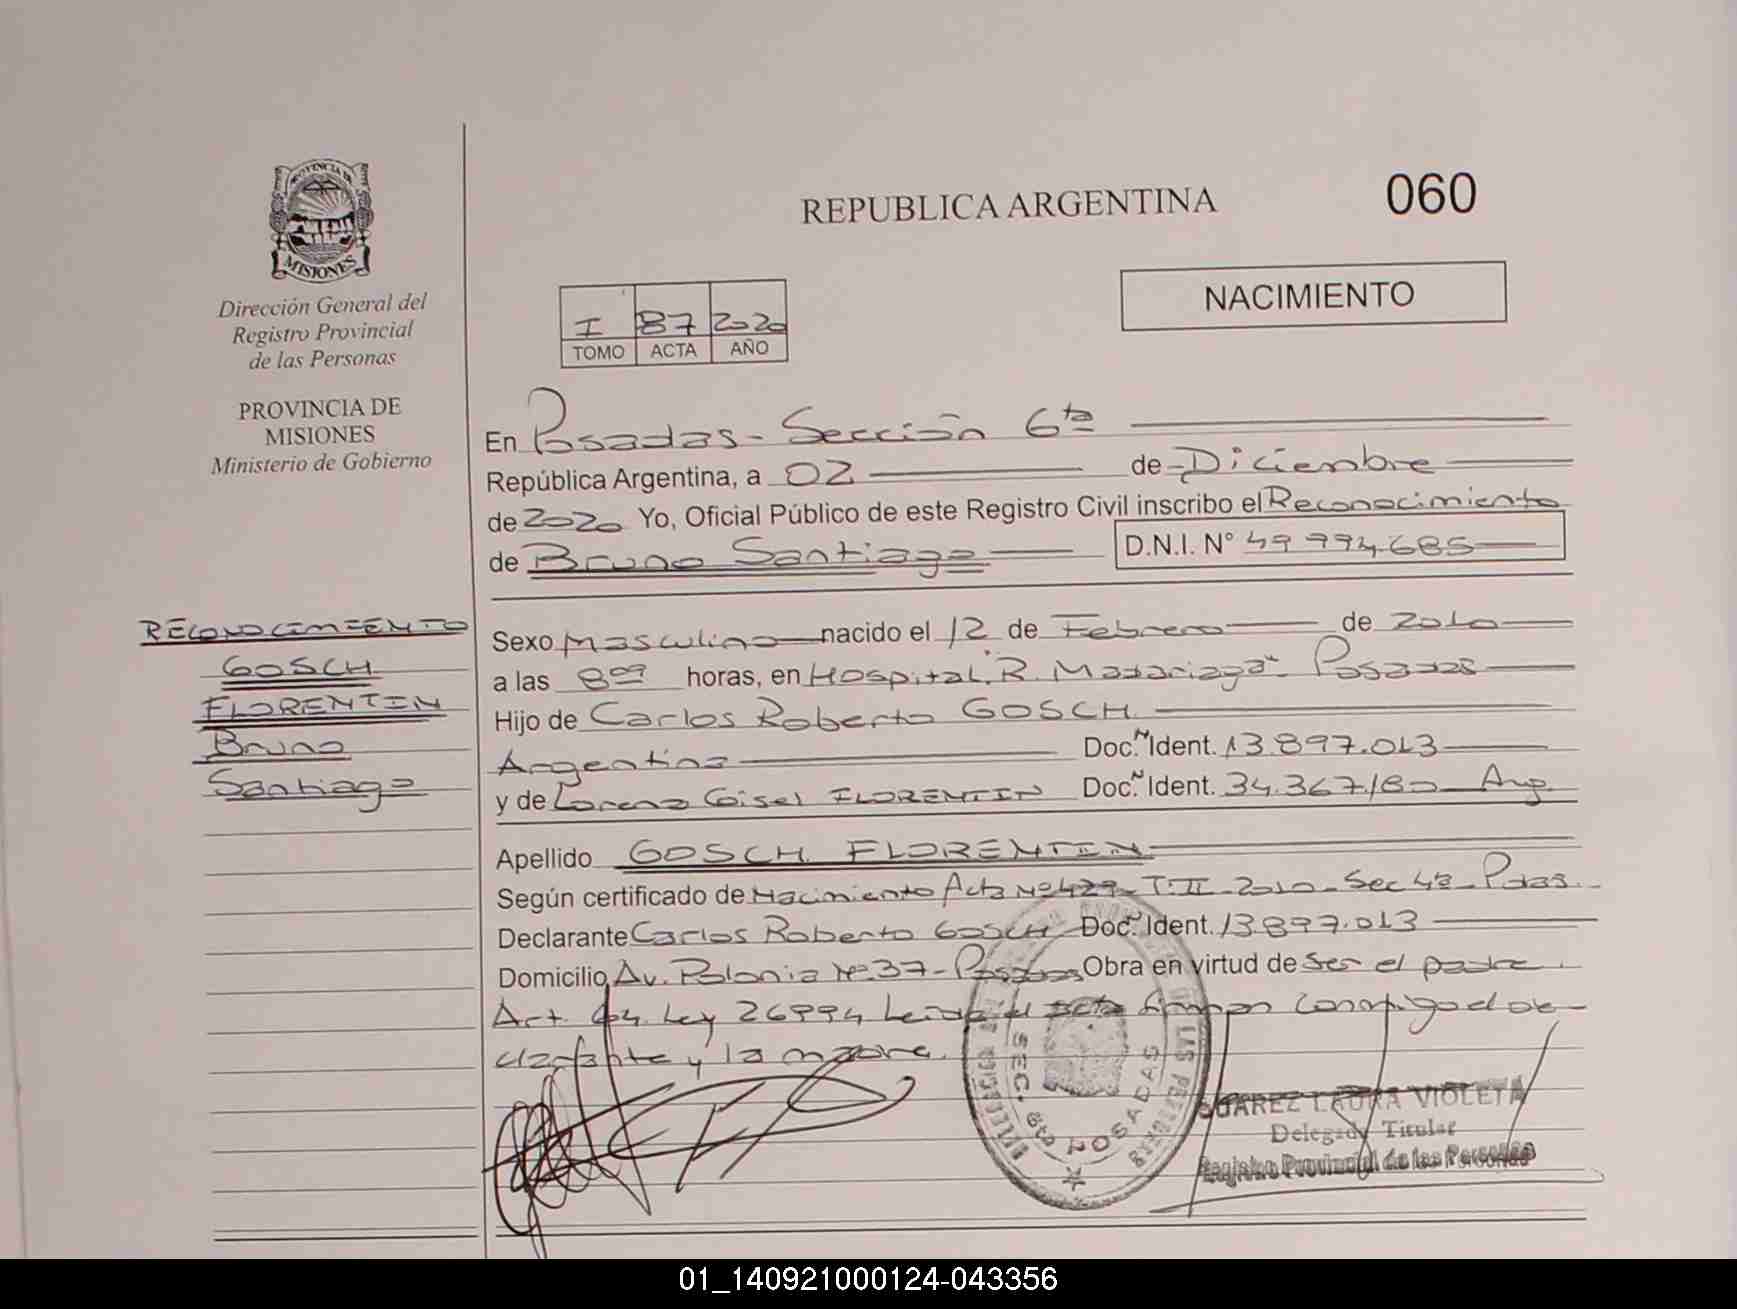 PROVINCIA DE
MISIONES
Dirección General del
Registro Provincial
de las Personas
PROVINCIA DE
MISIONES
Ministerio de Gobierno
REPUBLICA ARGENTINA
060
NACIMIENTO
I 87 2020
TOMO ACTA AÑO
En Posadas - Sección 6ta
República Argentina, a 02 de Diciembre
de 2020 Yo, Oficial Público de este Registro Civil inscribo el Reconocimiento
de Bruno Santiago D.N.I. N° 49 994.685
RECONOCIMIENTO
GOSCH
FLORENTIN
Bruno
Santiago
Sexo Masculino nacido el 12 de Febrero de 2010
a las 8 horas, en Hospital. R. Madariaga - Posadas
Hijo de Carlos Roberto GOSCH
Argentina Doc. Ident. 13.897.013
y de Lorena Gisel FLORENTIN Doc. Ident. 34.367.180 Arg.
Apellido GOSCH FLORENTIN
Según certificado de Nacimiento Acta Nº 429 - T: II - 2010 - Sec 4ª - Pdas.
Declarante Carlos Roberto GOSCH Doc. Ident. 13.897.013
Domicilio Av. Polonia Nº 37 - Posadas Obra en virtud de Ser el padre.
Art. 64 Ley 26994 Leida el acta firman conmigo el de-
clarante y la madre.
SEC. 6ta
POSADAS
SUAREZ LAURA VIOLETA
Delegada Titular
Registro Provincial de las Personas
01_140921000124-043356